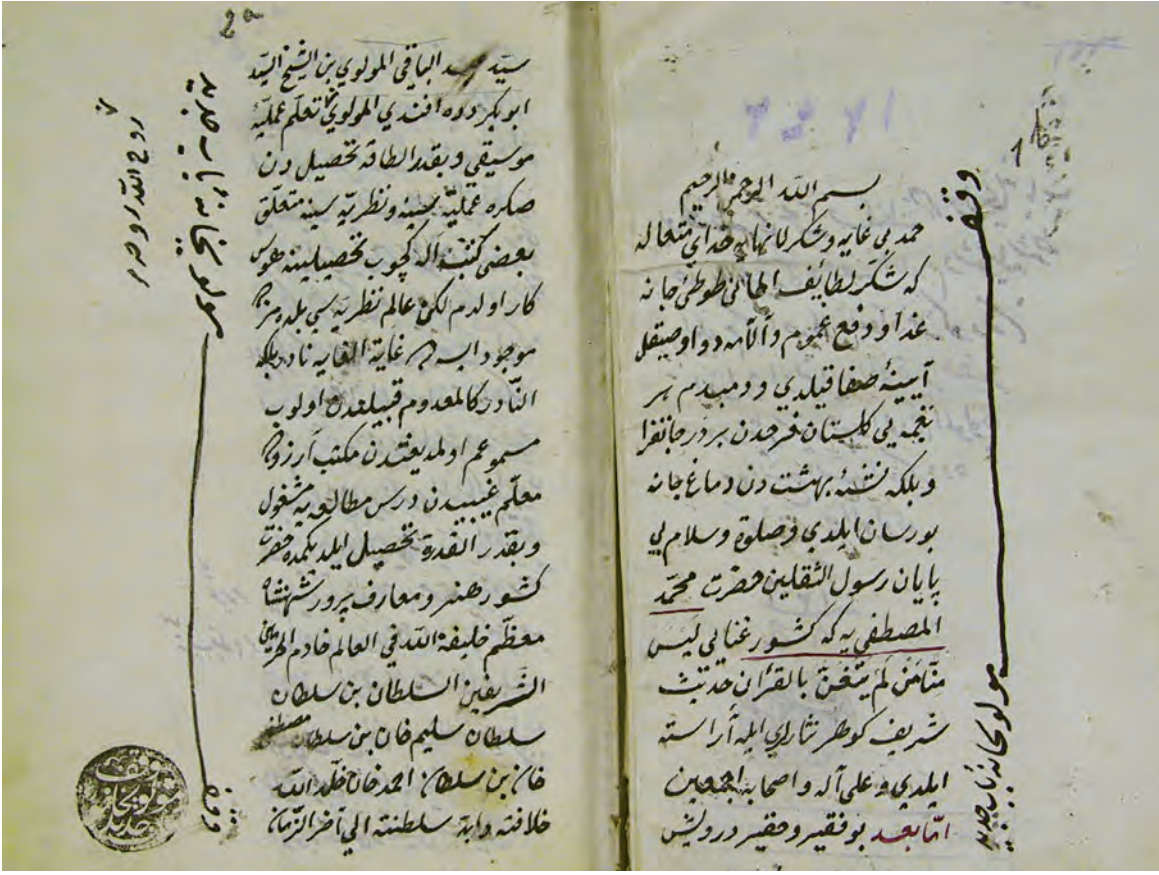 بسم الله الرحمن الرحيم
حمد بى غايه وشكر لانهايه خداى متعاله
كه شكر لطايف الحانى طوطئ جانه
غذا و دفع غموم وآلامه دوا وصيقل
آيينۀ صفا قيلدي و دمبدم هر
نغمه يى كلستان فرحدن بر در جانفزا
وبلكه نشئۀ بهشت دن دماغ جانه
بورسان ايلدي وصلوة وسلام بى
پايان رسول الثقلين حضرت محمّد
المصطفى يه كه كشور غنايى ليس
منّا من لم يتغنّ بالقرآن حديث
شريف كوهر نثارى ايله آراسته
ايلدي وعلى آله واصحابه اجمعين
امّا بعد بو فقير وحقير درويش
وقف
مولويخانه باب جديد
1
2a
سيّد عبد الباقي المولوي بن الشيخ السيّد
ابوبكر دده افندي المولوي تعلّم عمليۀ
موسيقي وبقدر الطاقه تحصيل دن
صكره عمليّه سينه ونظريّه سينه متعلّق
بعضى كتب اله كچوب تحصيلينه هوس
كار اولدم لكن عالم نظريّه سي بلده مزده
موجود ايسه ده غاية الغايه نادر بلكه
النّادر كالمعدوم قبيلندن اولوب
مسموعم اولمديغندن مكتب آرزوده
معلّم غيبيدن درس مطالعه يه مشغول
وبقدر القدرة تحصيل ايلديكمده حضرت
كشور هنر ومعارف پرور شهنشاه
معظّم خليفة الله في العالم خادم الحرمين
الشريفين السلطان بن سلطان
سلطان سليم خان بن سلطان مصطفى
خان بن سلطان احمد خان خلّد الله
خلافته وابّد سلطنته الي آخر الزمان
روح الله روحه
وقف
وقف مولويخانه جديد